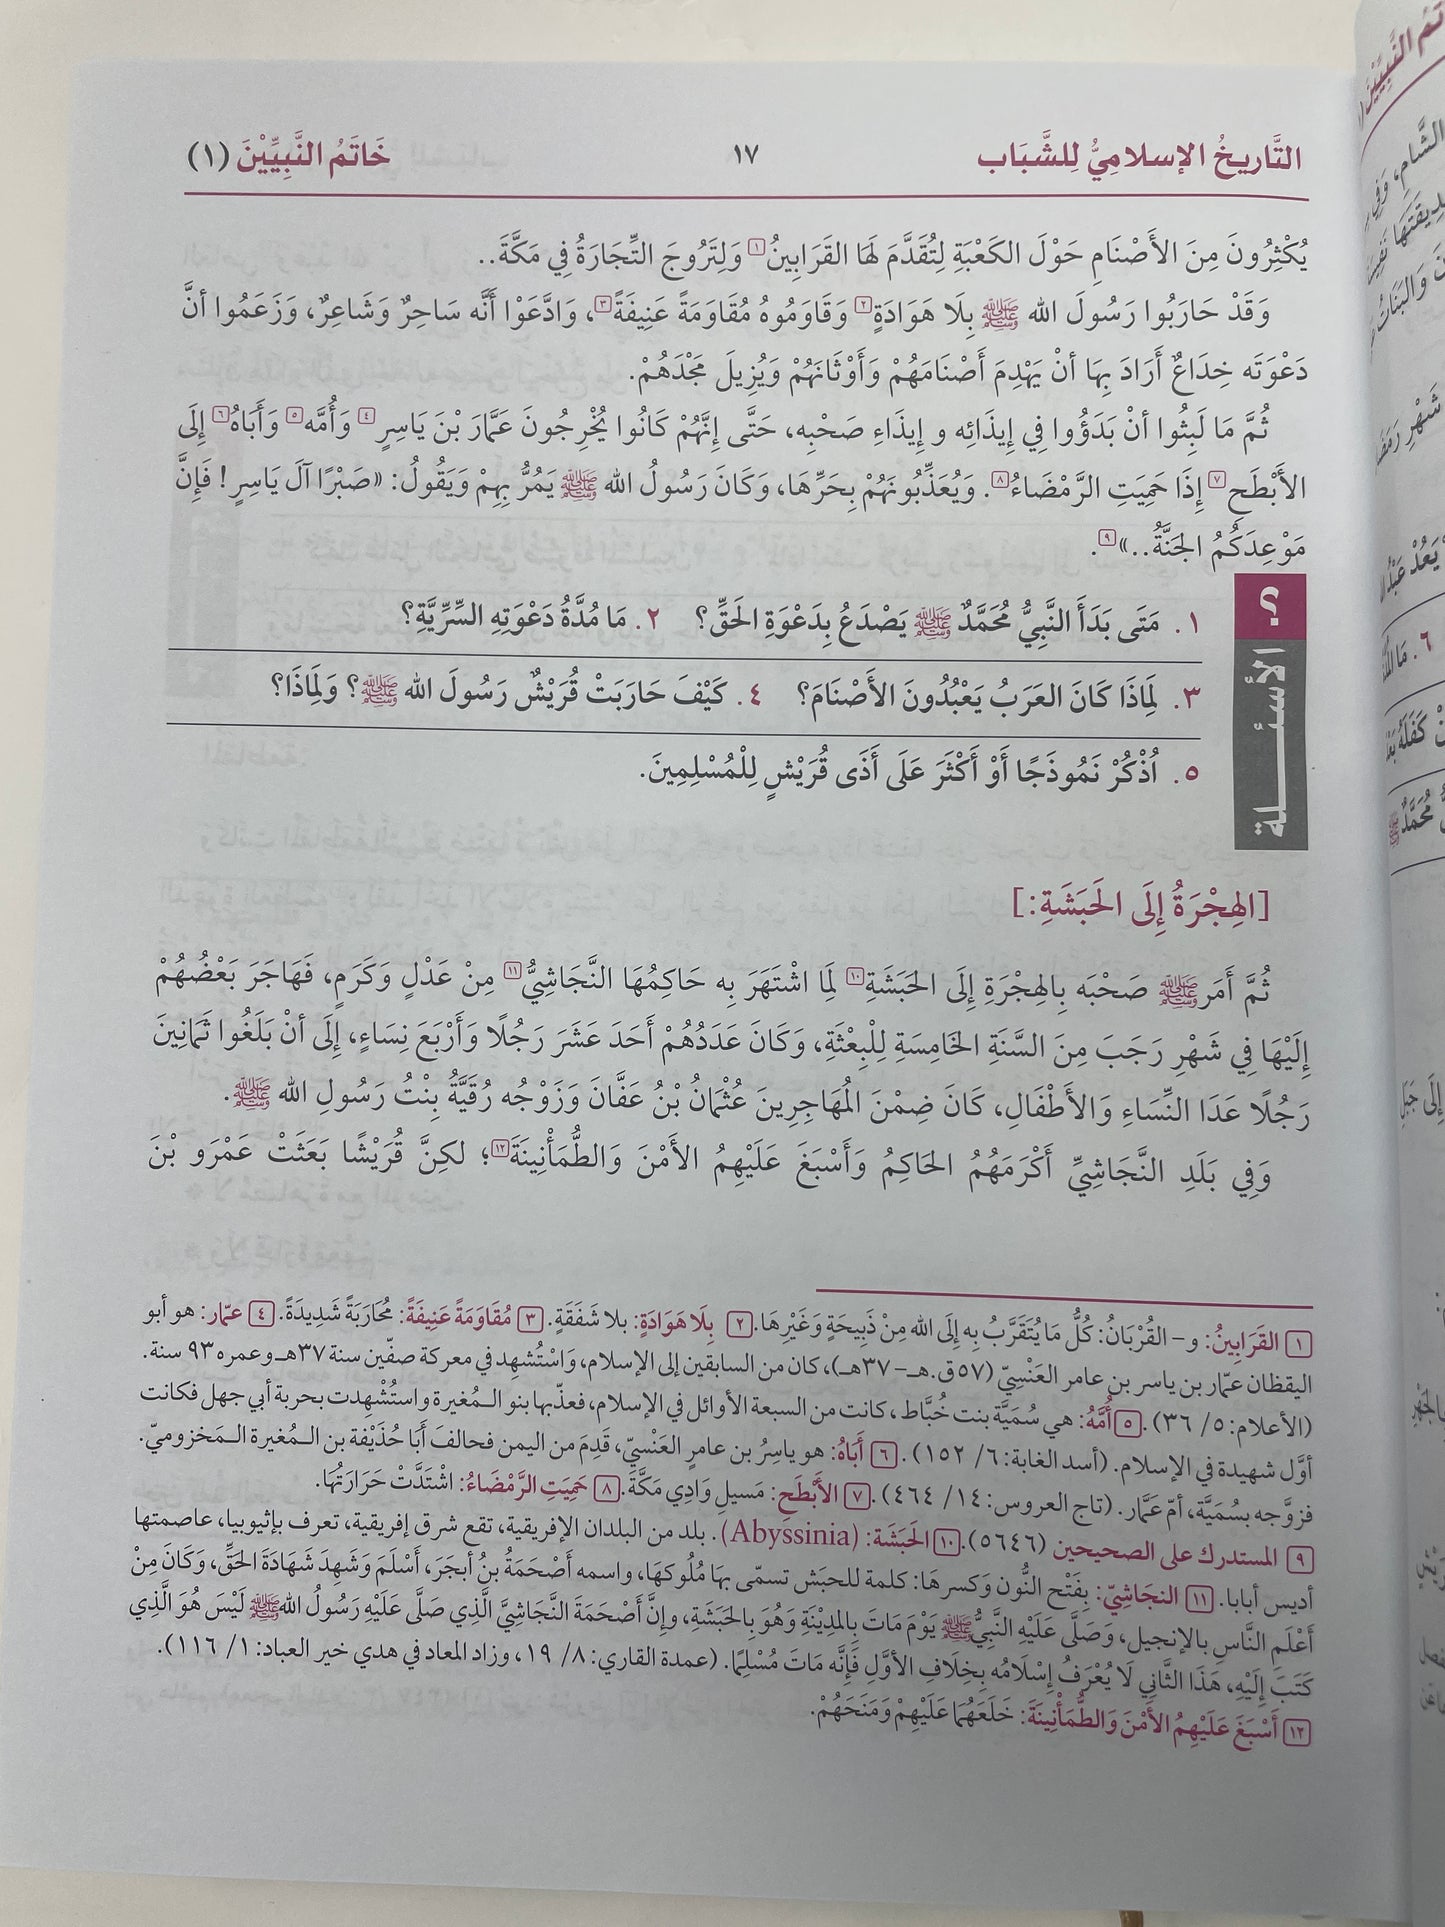 التَّارِيخُ الإِسلامِيُّ لِلشَّبَاب ١٧ خَاتَمُ النَّبِيِّيْنَ (١)
يُكْثِرُونَ مِنَ الأَصْنَامِ حَوْلَ الكَعْبَةِ لِتُقَدَّمَ لَهَا القَرَابِينُ[١] وَلِتَرُوجَ التِّجَارَةُ فِي مَكَّةَ..
وَقَدْ حَارَبُوا رَسُولَ الله ﷺ بِلَا هَوَادَةٍ[٢] وَقَاوَمُوهُ مُقَاوَمَةً عَنِيفَةً[٣]، وَادَّعَوْا أَنَّه سَاحِرٌ وَشَاعِرٌ، وَزَعَمُوا أنَّ
دَعْوَتَه خِدَاعٌ أَرَادَ بِهَا أنْ يَهْدِمَ أَصْنَامَهُمْ وَأَوْثَانَهُمْ وَيُزِيلَ مَجْدَهُمْ.
ثُمَّ مَا لَبِثُوا أنْ بَدَؤُوا فِي إِيذَائِه و إِيذَاءِ صَحْبِه، حَتَّى إِنَّهُمْ كَانُوا يُخْرِجُونَ عَمَّارَ بْنَ يَاسِرٍ[٤] وَأُمَّه[٥] وَأَبَاهُ[٦] إِلَى
الأَبْطَحِ[٧] إِذَا حَمِيَتِ الرَّمْضَاءُ[٨]. وَيُعَذِّبُونَهُمْ بِحَرِّهَا، وَكَانَ رَسُولُ الله ﷺ يَمُرُّ بِهِمْ وَيَقُولُ: «صَبْرًا آلَ يَاسِرٍ! فَإِنَّ
مَوْعِدَكُمُ الجَنَّةُ..»[٩].
؟ الأسئـــلة
١. مَتَى بَدَأَ النَّبِيُّ مُحَمَّدٌ ﷺ يَصْدَعُ بِدَعْوَةِ الحَقِّ؟ ٢. مَا مُدَّةُ دَعْوَتِهِ السِّرِّيَّةِ؟
٣. لِمَاذَا كَانَ العَرَبُ يَعْبُدُونَ الأَصْنَامَ؟ ٤. كَيْفَ حَارَبَتْ قُرَيْشٌ رَسُولَ الله ﷺ؟ وَلِمَاذَا؟
٥. اُذْكُرْ نَمُوذَجًا أَوْ أَكْثَرَ عَلَى أَذَى قُرَيْشٍ لِلْمُسْلِمِينَ.
[الهِجْرَةُ إِلَى الحَبَشَةِ:]
ثُمَّ أَمَرَ ﷺ صَحْبَه بِالهِجْرَةِ إِلَى الحَبَشَةِ[١٠] لِمَا اشْتَهَرَ بِه حَاكِمُهَا النَّجَاشِيُّ[١١] مِنْ عَدْلٍ وَكَرَمٍ، فَهَاجَرَ بَعْضُهُمْ
إِلَيْهَا فِي شَهْرِ رَجَبَ مِنَ السَّنَةِ الخَامِسَةِ لِلْبِعْثَةِ، وَكَانَ عَدَدُهُمْ أَحَدَ عَشَرَ رَجُلًا وَأَرْبَعَ نِسَاءٍ، إِلَى أنْ بَلَغُوا ثَمَانِينَ
رَجُلًا عَدَا النِّسَاءِ وَالأَطْفَالِ، كَانَ ضِمْنَ المُهَاجِرِينَ عُثْمَانُ بْنُ عَفَّانَ وَزَوْجُه رُقَيَّةُ بِنْتُ رَسُولِ الله ﷺ.
وَفِي بَلَدِ النَّجَاشِيِّ أَكْرَمَهُمُ الحَاكِمُ وَأَسْبَغَ عَلَيْهِمُ الأَمْنَ وَالطُّمَأْنِينَةَ[١٢]؛ لكِنَّ قُرَيْشًا بَعَثَتْ عَمْرَو بْنَ
[١] القَرَابِينُ: و- القُرْبَانُ: كُلُّ مَا يُتَقَرَّبُ بِه إِلَى الله مِنْ ذَبِيحَةٍ وَغَيْرِهَا. [٢] بِلَا هَوَادَةٍ: بلا شَفَقَةٍ. [٣] مُقَاوَمَةً عَنِيفَةً: مُحَارَبَةً شَدِيدَةً. [٤] عمّار: هو أبو
اليقظان عمّار بن ياسر بن عامر العَنْسِيّ (٥٧ق.هـ-٣٧هـ)، كان من السابقين إلى الإسلام، وَاسْتُشهِد في معركة صفّين سنة ٣٧هـ وعمره ٩٣ سنة.
(الأعلام: ٥/ ٣٦). [٥] أُمَّهُ: هي سُمَيَّة بنت خُبَّاط، كانت من السبعة الأوائل في الإسلام، فعذّبها بنو المُغيرة واستُشْهِدت بحربة أبي جهل فكانت
أوَّل شهيدة في الإسلام. (أسد الغابة: ٦/ ١٥٢). [٦] أَبَاهُ: هو ياسِرُ بن عامرٍ العَنْسيّ، قَدِمَ من اليمن فحالفَ أَبَا حُذَيْفة بن المُغيرة المَخزوميّ.
فزوَّجه بسُمَيَّة، أمّ عَمَّار. (تاج العروس: ١٤/ ٤٦٤). [٧] الأَبْطَحِ: مَسيلِ وَادِي مَكَّةَ. [٨] حَمِيَتِ الرَّمْضَاءُ: اشْتَدَّتْ حَرَارَتُهَا.
[٩] المستدرك على الصحيحين (٥٦٤٦). [١٠] الحَبَشَة: (Abyssinia). بلد من البلدان الإفريقية، تقع شرق إفريقية، تعرف بإثيوبيا، عاصمتها
أديس أبابا. [١١] النجَاشِيّ: بِفَتْح النُّون وَكسرهَا: كلمة للحبَش تسمّى بهَا مُلُوكهَا، واسمه أَصْحَمَةُ بنُ أبجَرَ، أَسْلَمَ وَشَهِدَ شَهَادَةَ الحَقِّ، وَكَانَ مِنْ
أَعْلَمِ النَّاسِ بِالإنجيل، وَصَلَّى عَلَيْهِ النَّبِيُّ ﷺ يَوْمَ مَاتَ بِالمِدِيْنَةِ وَهُوَ بِالحَبَشَةِ، وإِنَّ أَصْحَمَةَ النَّجَاشِيَّ الَّذِي صَلَّى عَلَيْهِ رَسُولُ الله ﷺ لَيْسَ هُوَ الَّذِي
كَتَبَ إِلَيْهِ، هَذَا الثَّانِي لَا يُعْرَفُ إِسْلَامُه بِخِلَافِ الأَوَّلِ فَإِنَّه مَاتَ مُسْلِمًا. (عمدة القاري: ٨/ ١٩، وزاد المعاد في هدي خير العباد: ١/ ١١٦).
[١٢] أَسْبَغَ عَلَيْهِمُ الأَمْنَ وَالطُّمَأْنِينَةَ: خَلَعَهُمَا عَلَيْهِمْ وَمَنَحَهُمْ.